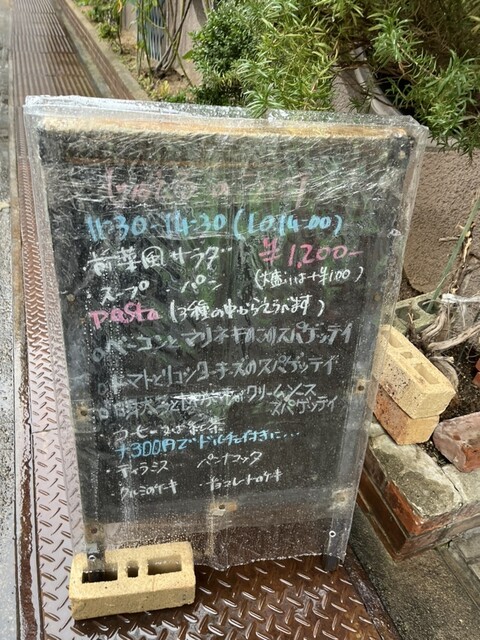 11:30-14:30(L.O.14:00)
前菜風サラダ ¥1,200-
スープ ・パン (大盛りは+¥100)
pasta (3種の中からえらべます)
ベーコンとマリネキのこのスパゲッティ
トマトとリコッタチーズのスパゲッティ
クリームソース
スパゲッティ
コーヒーor紅茶
+300円でドルチェ付きに…
・ティラミス ・パンナコッタ
・クルミのケーキ ・チョコレートのケーキ